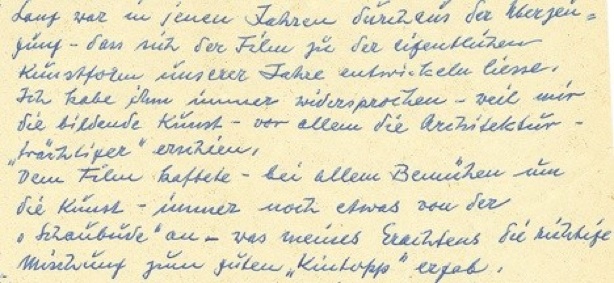 Lang war in jenen Jahren durchaus der Überzeu=
gung - dass sich der Film zu der eigentlichen
Kunstform unserer Jahre entwickeln liesse.
Ich habe ihm immer widersprochen - weil mir
die bildende Kunst - vor allem die Architektur -
„trächtiger" erschien.
Dem Film haftete - bei allem Bemühen um
die Kunst - immer noch etwas von der
„Schaubude" an - was meines Erachtens die richtige
Mischung zum guten „Kintopp" ergab.